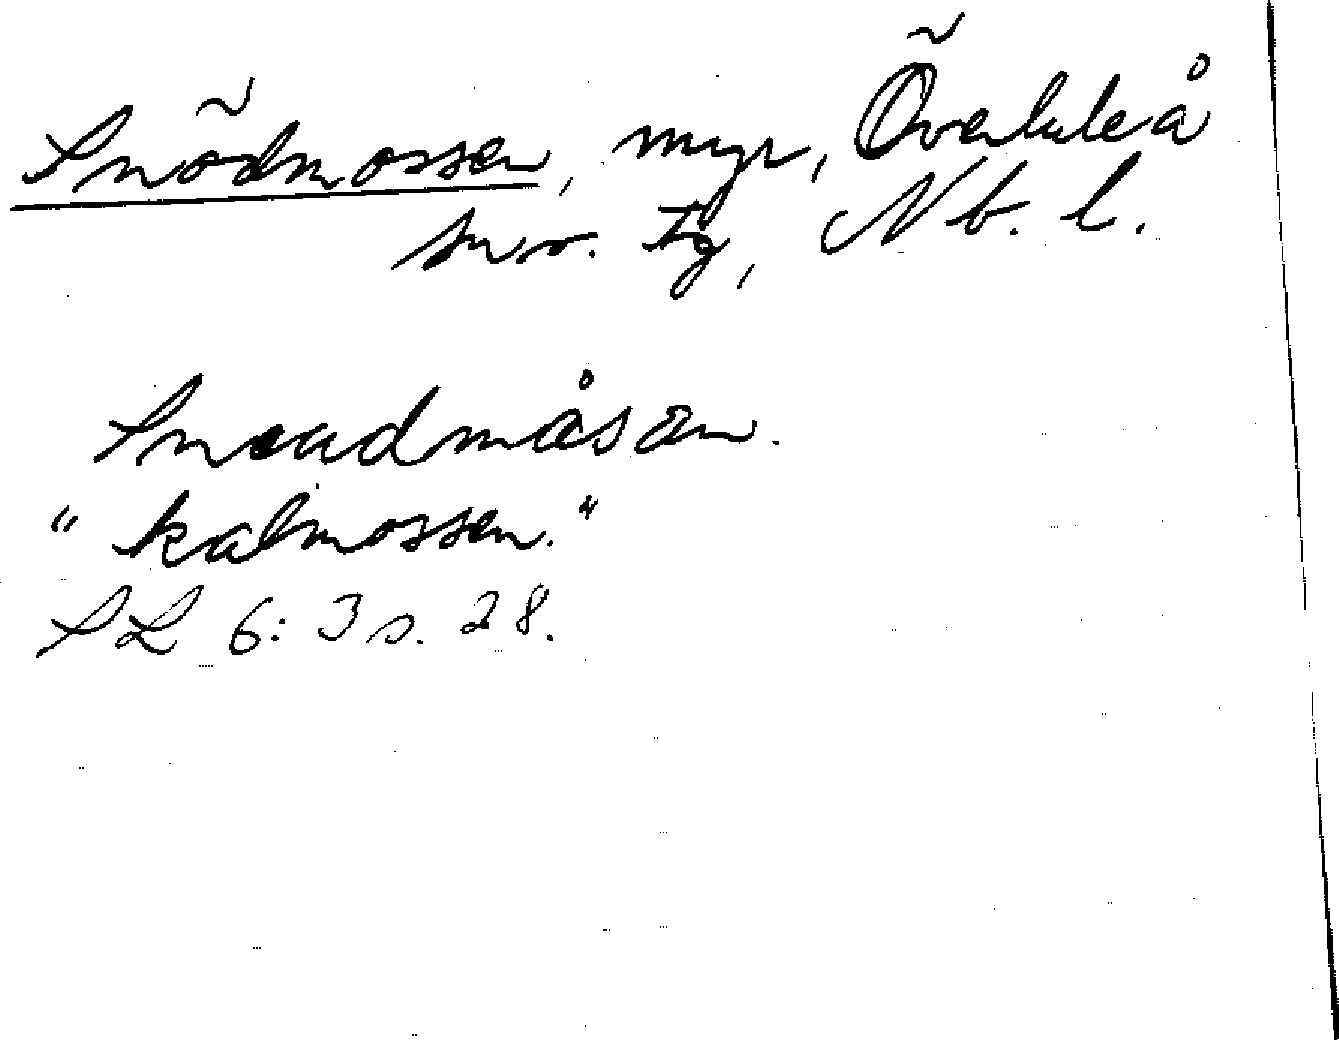 Snödmossen, myr, Överluleå
sn o. tg, Nb. l.
Sneudmåsan.
"kalmossen."
SL 6:3 s. 28.